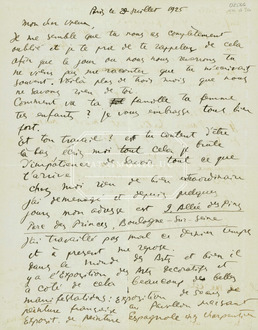 Paris, le 28 Juillet 1925
mon cher
Je me semble que tu nous as complètement
oublié et je te prie de te rappeler de cela
afin que le jour où nous nous verrons tu
ne viens pas me raconter que tu m'écrivais
souvent. Voilà plus de trois mois que nous
ne savons rien de toi.
Comment va ta famille ta femme
tes enfants? je vous embrasse tous bien
fort.
Est ton travail? es tu content d'être
là bas dis moi tout cela je brûle
d'impatience de savoir tout ce que
t'arrive
chez moi rien de bien extraordinaire
j'ai demenagé et depuis quelques
jours mon adresse est 2 Allée des Pins
Parc des Princes, Boulogne-sur-Seine
j'ai travaillé pas mal ces derniers temps
et à present me repose.
dans le monde des Arts et bien il
y a l'Exposition des Arts decoratifs et
à coté de cela beaucoup de belles
manifestations: Exposition de 50 ans de
peinture française au Pavillon Marsant
Exposit. de peinture Espagnole chez Charpentier